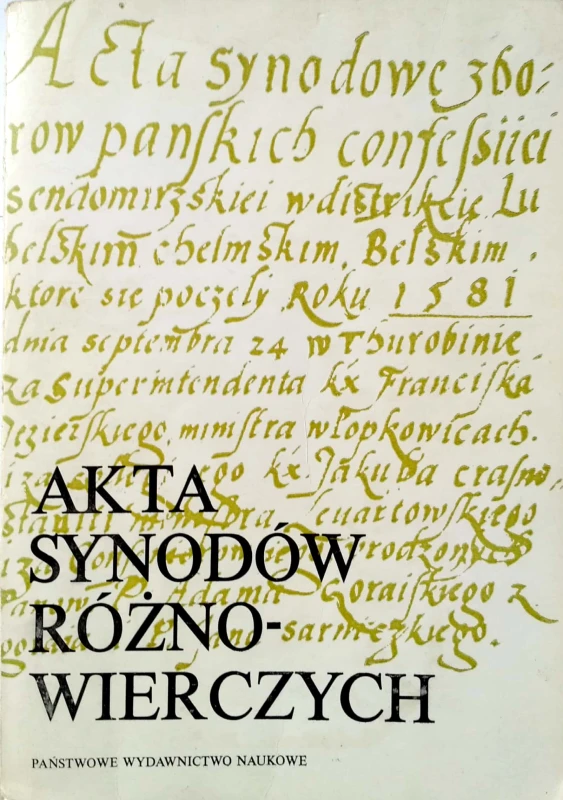 Acta synodowe zbo:
row panskich confessiiei
sendomirzskiei w distrikcie Lu
belskim chelmskim, Belskim.
ktore się poczęly Roku 1581
dnia septembra 24 w Thurobinie
za Superintendenta kx Franciska
Jezierskiego, ministra w łopkowicach.
kx. Jakuba crasno
AKTA
SYNODÓW
P. Adama Goraiskiego z
RÓŻNO-
sarniczkiego.
WIERCZYCH
PAŃSTWOWE WYDAWNICTWO NAUKOWE